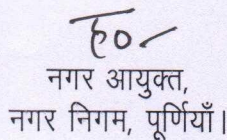 ह०/-
नगर आयुक्त,
नगर निगम, पूर्णियाँ।